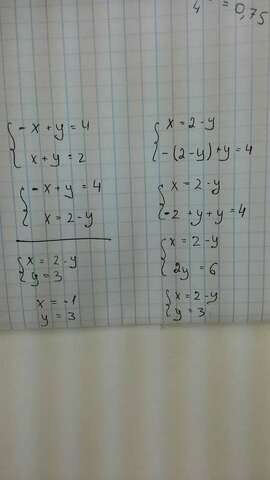 4 = 0,75
{ - x + y = 4
x + y = 2
{ - x + y = 4
x = 2 - y
{ x = 2 - y
y = 3
x = -1
y = 3
{ x = 2 - y
-(2 - y) + y = 4
{ x = 2 - y
-2 + y + y = 4
{ x = 2 - y
2y = 6
{ x = 2 - y
y = 3